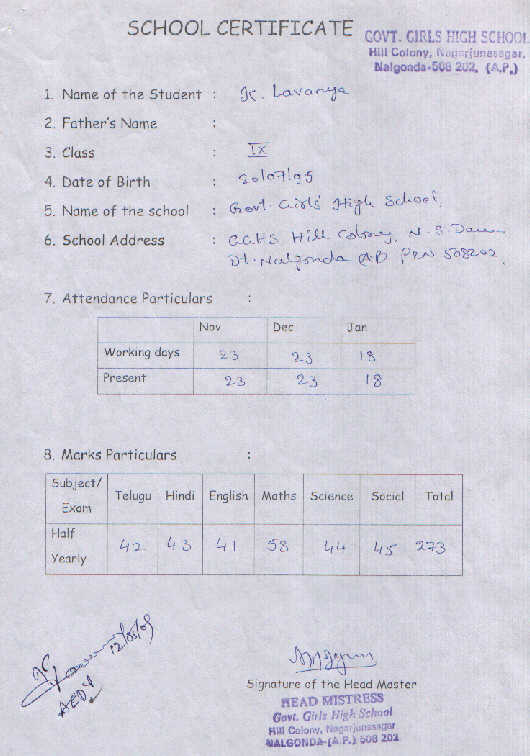 SCHOOL CERTIFICATE
GOVT. GIRLS HIGH SCHOOL
Hill Colony, Nagarjunasagar,
Nalgonda-508 202. (A.P.)
1. Name of the Student : K. Lavanya
2. Father's Name :
3. Class : IX
4. Date of Birth : 20/07/95
5. Name of the school : Govt. Girls' High School,
6. School Address : G.G.H.S Hill Colony, N. S.
Dt. Nalgonda AP PIN 508202
7. Attendance Particulars :
Nov Dec Jan
Working days 23 23 18
Present 23 23 18
8. Marks Particulars :
Subject/ Exam Telugu Hindi English Maths Science Social Total
Half Yearly 42 43 41 58 44 45 273
AEDY
Signature of the Head Master
HEAD MISTRESS
Govt. Girls High School
Hill Colony, Nagarjunasagar
NALGONDA-(A.P.) 508 202